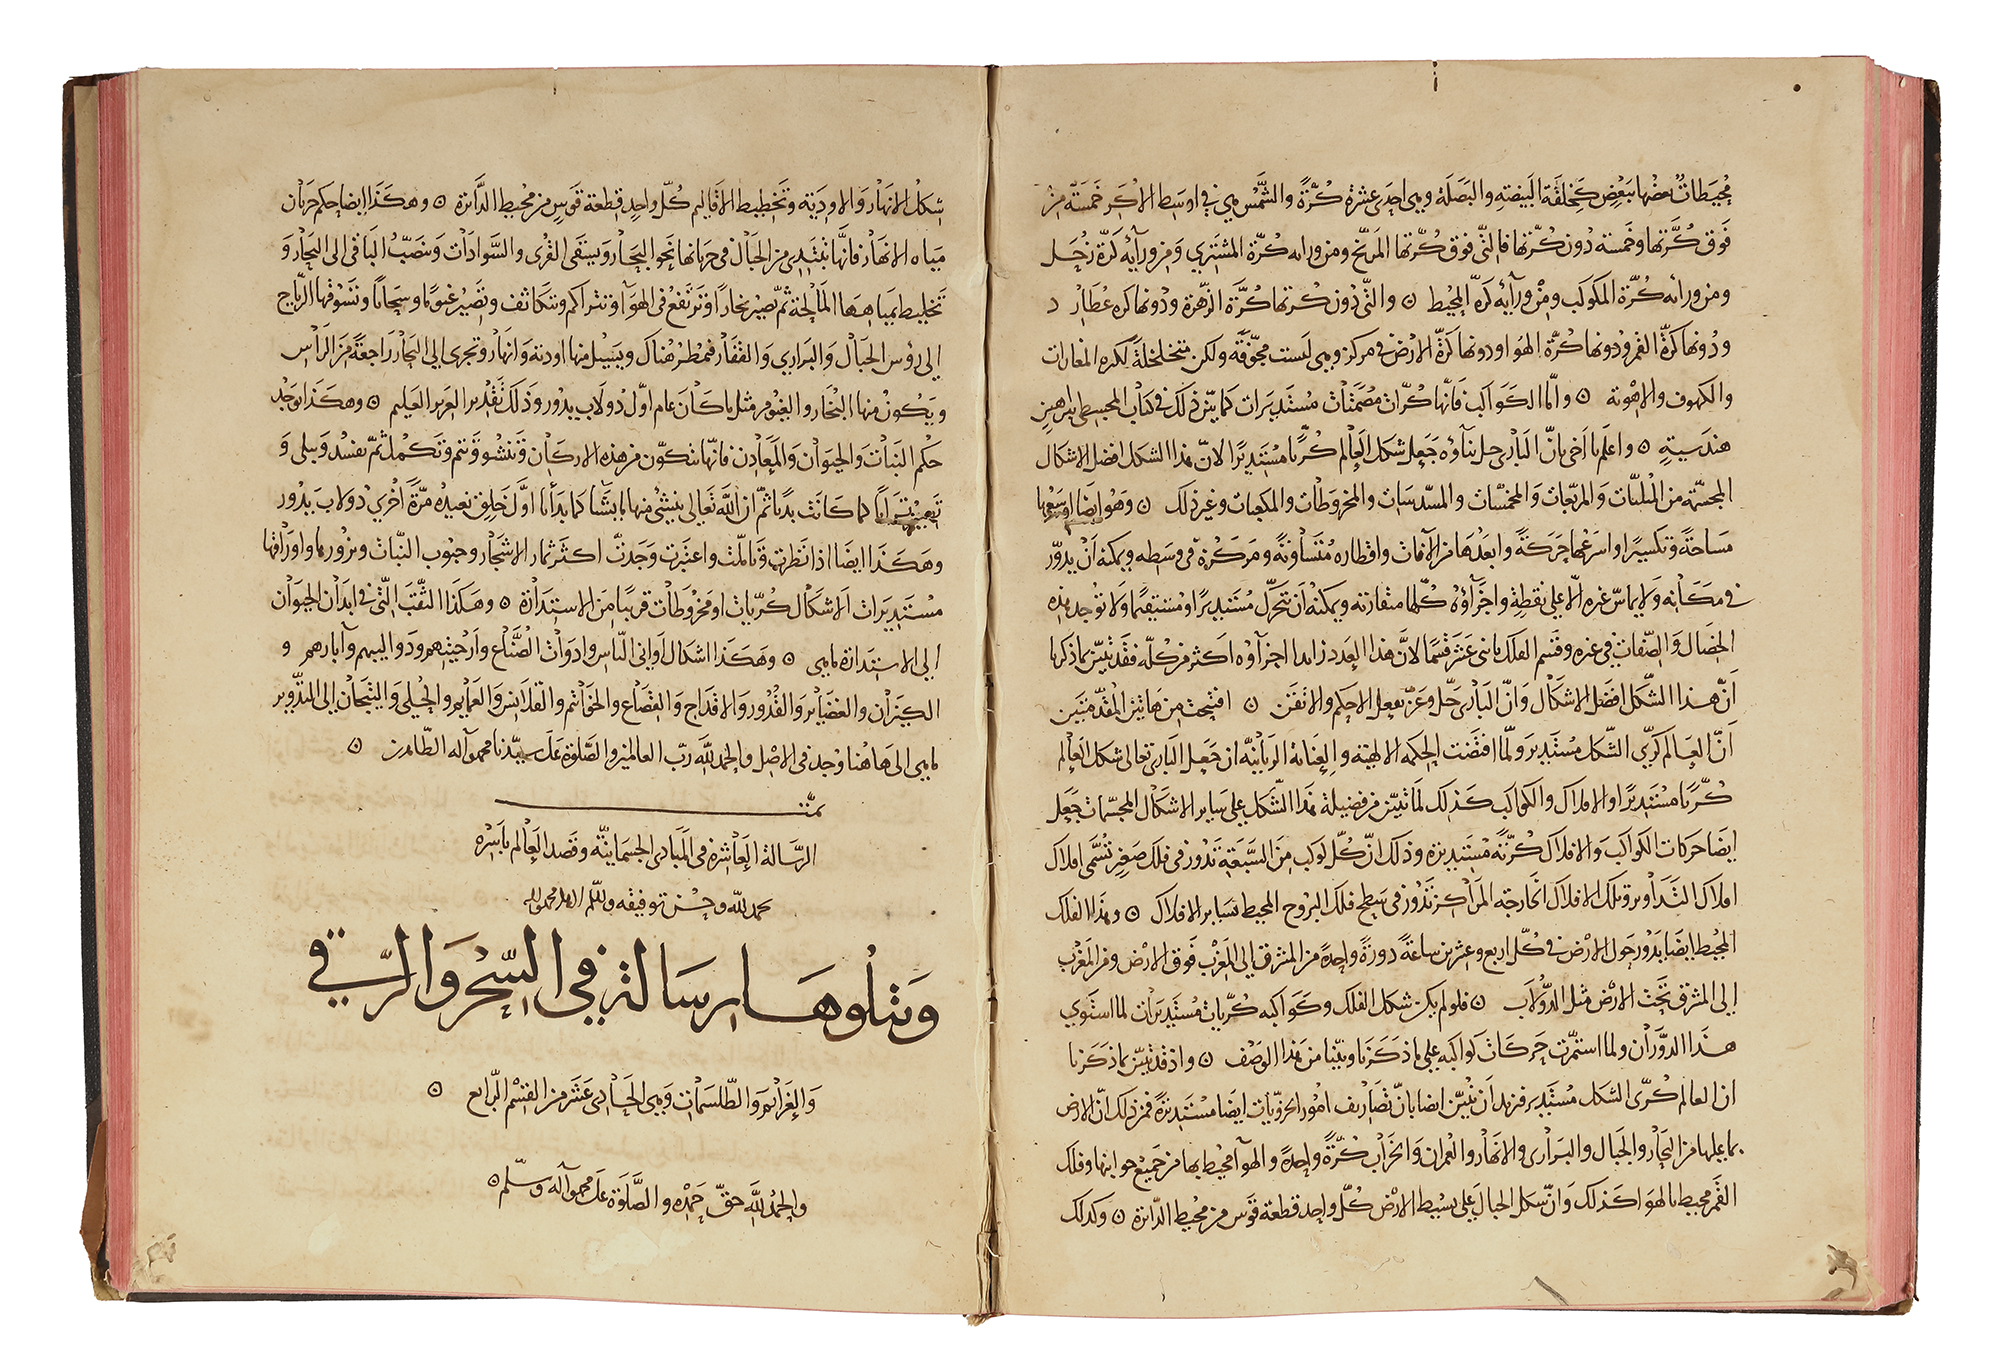 محيطات بعضها ببعض كخلقة البيضة والبصلة وهى احدى عشرة كرّة والشّمس هي في اوسط الاكر خمسة من
فوق كرّتها وخمسة دون كرّتها فالتّى فوق كرّتها المريخ ومن ورائه كرّة المشتري ومن ورآئه كرّة زحل
ومن ورائه كرّة الكواكب ومن ورآئه كرّة المحيط ۞ والتّى دون كرتها كرّة الزّهرة ودونها كرة عطارد
ودونها كرّة القمر ودونها كرّة الهوا ودونها كرّة الارض في مركز وهى ليست مجوّفة ولكن متخلخلة لكثرة المغارات
والكهوف والاهوية ۞ وامّا الكواكب فانّها كرّات مصمّتات مستديرات كما بيّن ذلك في كتاب المجسطى ببراهين
هندسية ۞ واعلم يا اخى بانّ البارى جل ثنآؤه جعل شكل العالم كرّيا مستديرًا لانّ هذا الشكل افضل الاشكال
المجسّمة من المثلثات والمربّعات والمخمّسات والمسدّسات والمخروطات والمكعبات وغير ذلك ۞ وهو ايضا اوسعها
مساحة وتكسيرا واسرعها حركة وابعدها من الآفات واقطاره متساوية ومركزه في وسطه ويمكنه أن يدوّر
في مكانه ولا يماسّ غيره الّا على نقطة واجزآؤه كلّها متقاربة ويمكنه أن تتحرّك مستديرًا ومستقيمًا ولا توجد هذه
الخصال والصّفات في غيره وقسم الفلك باثنى عشر قسمًا لانّ هذا العدد زايدا اجزآوه اكثر من كلّه فقد تبيّن بما ذكرنا
انّ هذا الشّكل افضل الاشكال وانّ البارى جلّ وعزّ يفعل الاحكم والاتقن ۞ افتتحت من هاتين المقدّمتين
انّ العالم كرّي الشّكل مستدير ولمّا اقتضت الحكمة الالهيّة والعناية الربانيّة ان جعل البارى تعالى شكل العالم
كرّيا مستديرًا والافلاك والكواكب كذلك لما تبيّن من فضيلة هذا الشّكل على ساير الاشكال المجسّمات جعل
ايضا حركات الكواكب والافلاك كرّيّة مستديرة وذلك انّ كلّ كوكب من السّبعة تدور في فلك صغير تسمّى افلاك
افلاك التداوير وتلك الافلاك الخارجة المراكز تدور في سطح فلك البروج المحيط بساير الافلاك ۞ وهذا الفلك
المحيط ايضا يدور حول الارض في كلّ اربع وعشرين ساعة دورة واحدة من المشرق الى المغرب فوق الارض ومن المغرب
الى المشرق تحت الارض مثل الدّولاب ۞ فلو لم يكن شكل الفلك وكواكبه كرّيات مستديرات لما استوي
هذا الدوّران ولما استمرّت حركات كواكبه على ما ذكرنا وبيّنا من هذا الوصف ۞ واذ قد تبيّن بما ذكرنا
ان العالم كرّى الشكل مستدير فنريد ان نبيّن ايضا بانّ تصاريف امور الجزؤيّات ايضا مستديرة فمن ذلك انّ الارض
بما عليها من البحار والجبال والبرارى والانهار والعمران والخراب كرّة واحدة والهوآ محيط بها من جميع جوانبها وفلك
القمر محيط بالهوا كذلك وانّ شكل الجبال على بسيط الارض كلّ واحد قطعة قوس من محيط الدّائرة ۞ وكذلك
شكل الانهار والاودية وتخطيط الاقاليم كلّ واحد قطعة قوس من محيط الدّائرة ۞ وهكذا ايضا حكم جريان
مياه الانهار فانّها تبتدى من الجبال في جريانها نحو البحار ويسقى القرى والسّوادات وتنصبّ الباقى الى البحار و
تختلط بمياهها المالحة ثمّ تصير بخارًا وترتفع في الهوآ وتتراكم وتتكاثف وتصير غيومًا وسحابًا وتسوقها الرّياح
الى رؤس الجبال والبراري والقفار فتمطر هناك ويسيل منها اودية وانهار وتجرى الى البحار راجعة من الرّأس
ويكون منها البخار والغيوم مثل ما كان عام اوّل دولاب يدور وذلك تقدير العزيز العليم ۞ وهكذا يوجد
حكم النبات والحيوان والمعادن فانّها تتكوّن من هذه الاركان وتنشو وتتم وتكمل ثمّ تفسد وتبلى و
تصير ترابًا كما كانت بديًّا ثمّ انّ الله تعالى ينشئ منها ما يشآ كما بدأنا اوّل خلق نعيده مرّة اخري دولاب يدور
وهكذا ايضا اذا نظرت وتاملت واعتبرت وجدتّ اكثر ثمار الاشجار وحبوب النّبات وبزورها واوراقها
مستديرات الاشكال كرّيات او مخروطات قريبًا من الاستدارة ۞ وهكذا الثّقب التّى في ابدان الحيوان
الى الاستدارة ما هى ۞ وهكذا اشكال اوانى النّاس وادوات الصّنّاع وارحيتهم ودواليبهم وآبارهم و
الكيزان والغضاير والقدور والاقداح والقصاع والخواتم والقلانس والعمايم والحلى والتيجان الى التدّوير
ما هى الى هاهنا وجد فى الاصل والحمد لله ربّ العالمين والصّلوة على سيّدنا محمد وآله الطّاهرين ۞
تمّت
الرّسالة العاشرة في المبادى الجسمانيّة وقصد العالم باسره
بحمد لله وحسن توفيقه
ويتلوها رسالة في السّحر والرّقي
والعزائم والطّلسمات وهى الحادى عشر من القسم الرّابع ۞
والحمد لله حقّ حمده والصّلوة على محمد وآله وسلّم ۞